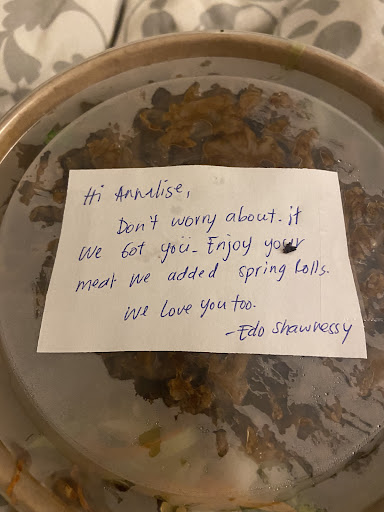 Hi Annalise,
Don't worry about. it
We Got you. Enjoy your
meat we added spring Rolls.
We Love You too.
-Edo Shawnessy